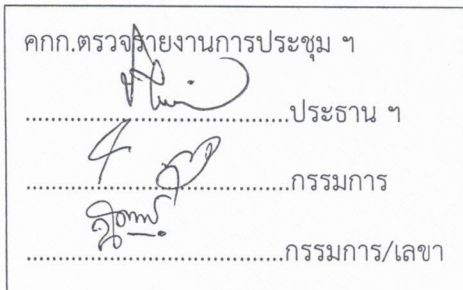 คกก.ตรวจรายงานการประชุม ฯ
..................................ประธาน ฯ
..................................กรรมการ
..................................กรรมการ/เลขา